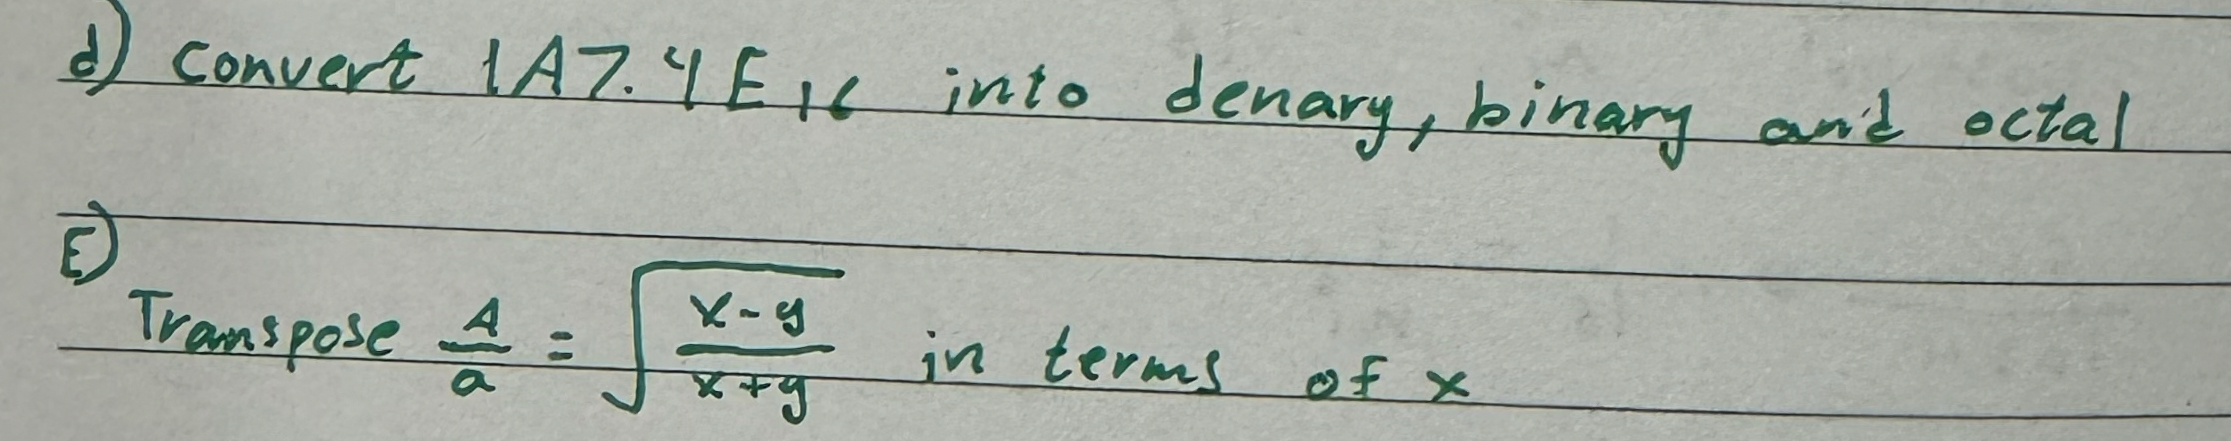 d) convert 1A7.4E₁₆ into denary, binary and octal
E)
Transpose A/a = √((x-y)/(x+y)) in terms of x